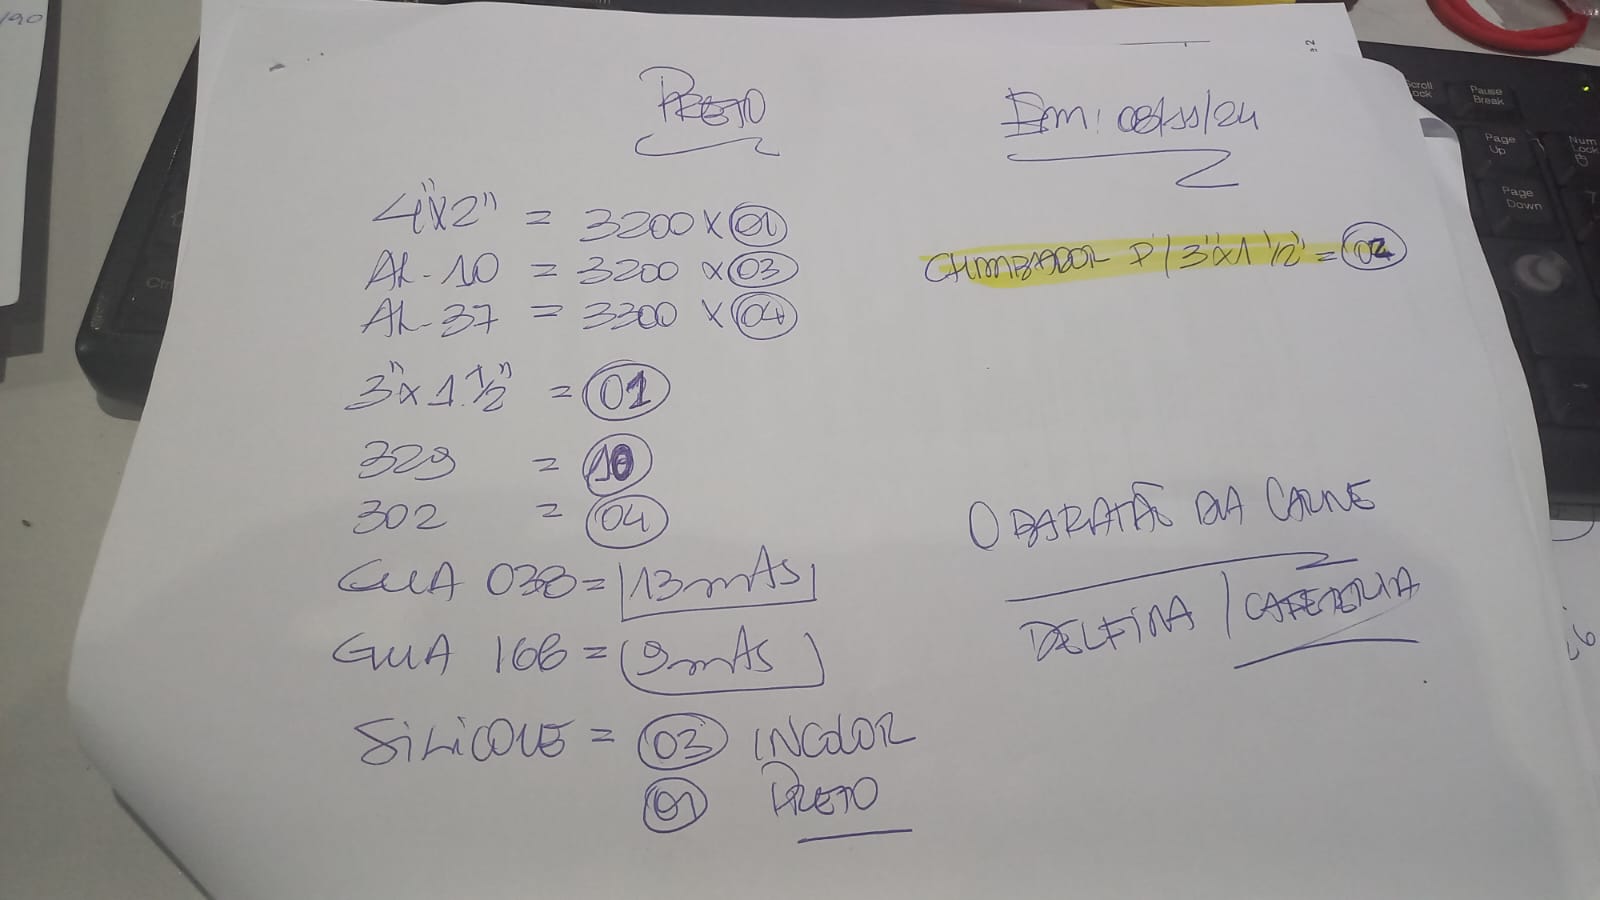 PRETO
Em: 08/11/24
4"x2" = 3200 x 01
AL-10 = 3200 x 03
AL-37 = 3300 x 04
3"x1.1/2" = 01
329 = 10
302 = 04
GUA 038 = 13mAs
GUA 166 = 9mAs
SiLiCONE = 03 INCOLOR
01 PRETO
CHUMBADOR P/ 3"x1 1/2" = 02
O BARATÃO DA CARNE
DELFINA / CAFETERIA
Scroll Lock
Pause Break
Page Up
Num Lock
Page Down